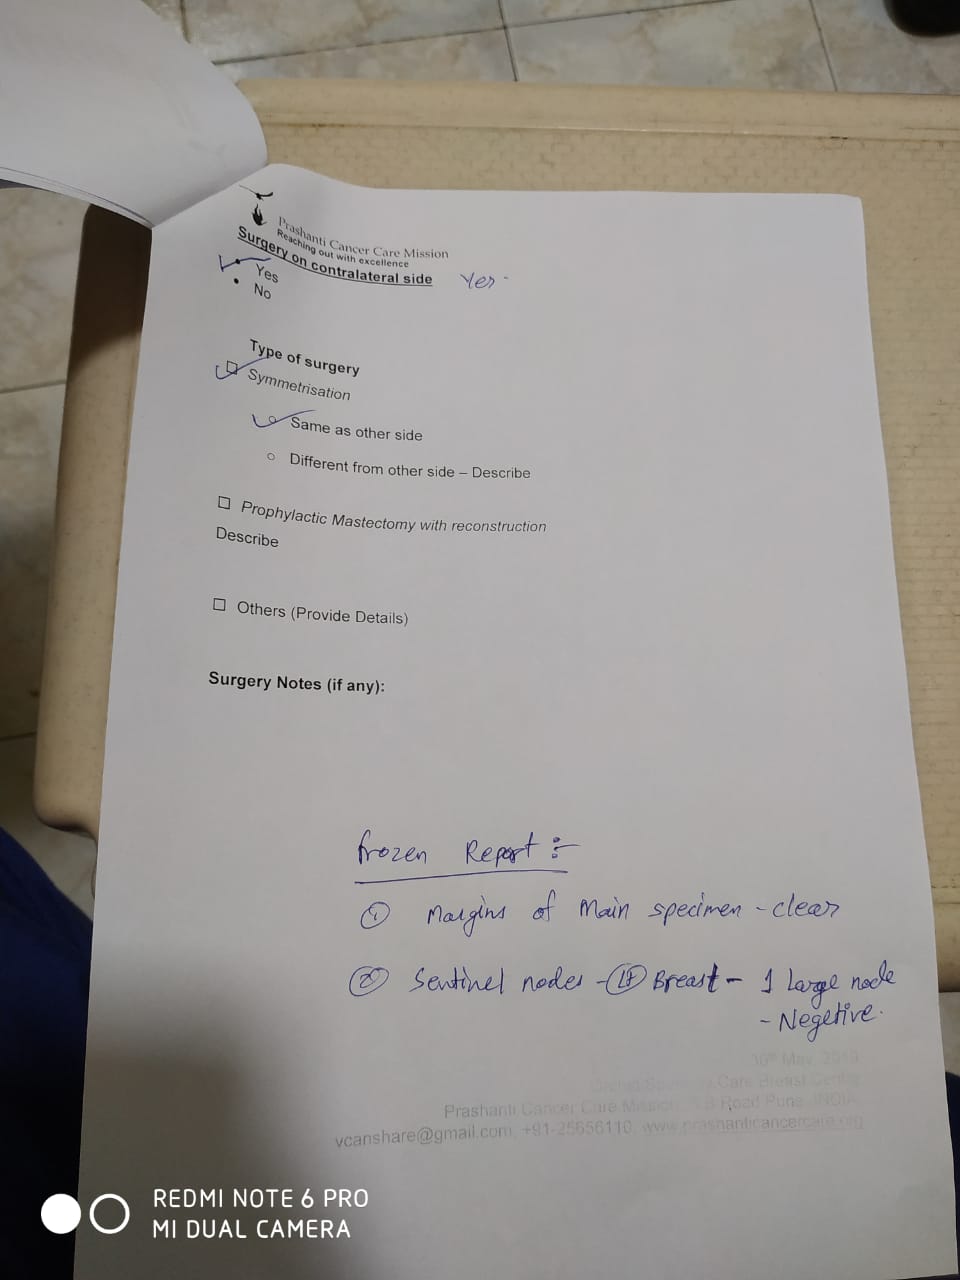 Prashanti Cancer Care Mission
Reaching out with excellence
Surgery on contralateral side Yes-
• Yes
• No
Type of surgery
Symmetrisation
Same as other side
o Different from other side – Describe
☐ Prophylactic Mastectomy with reconstruction
Describe
☐ Others (Provide Details)
Surgery Notes (if any):
frozen Report :-
① Margins of Main specimen - clear
② Sentinel nodes - (Lt) Breast - 1 Large node
- Negetive.
May, 2019
Care Breast Centre
Prashanti Cancer Care Mission, Road Pune, INDIA
vcanshare@gmail.com, +91-25656110, www.prashanticancercare.org
REDMI NOTE 6 PRO
MI DUAL CAMERA